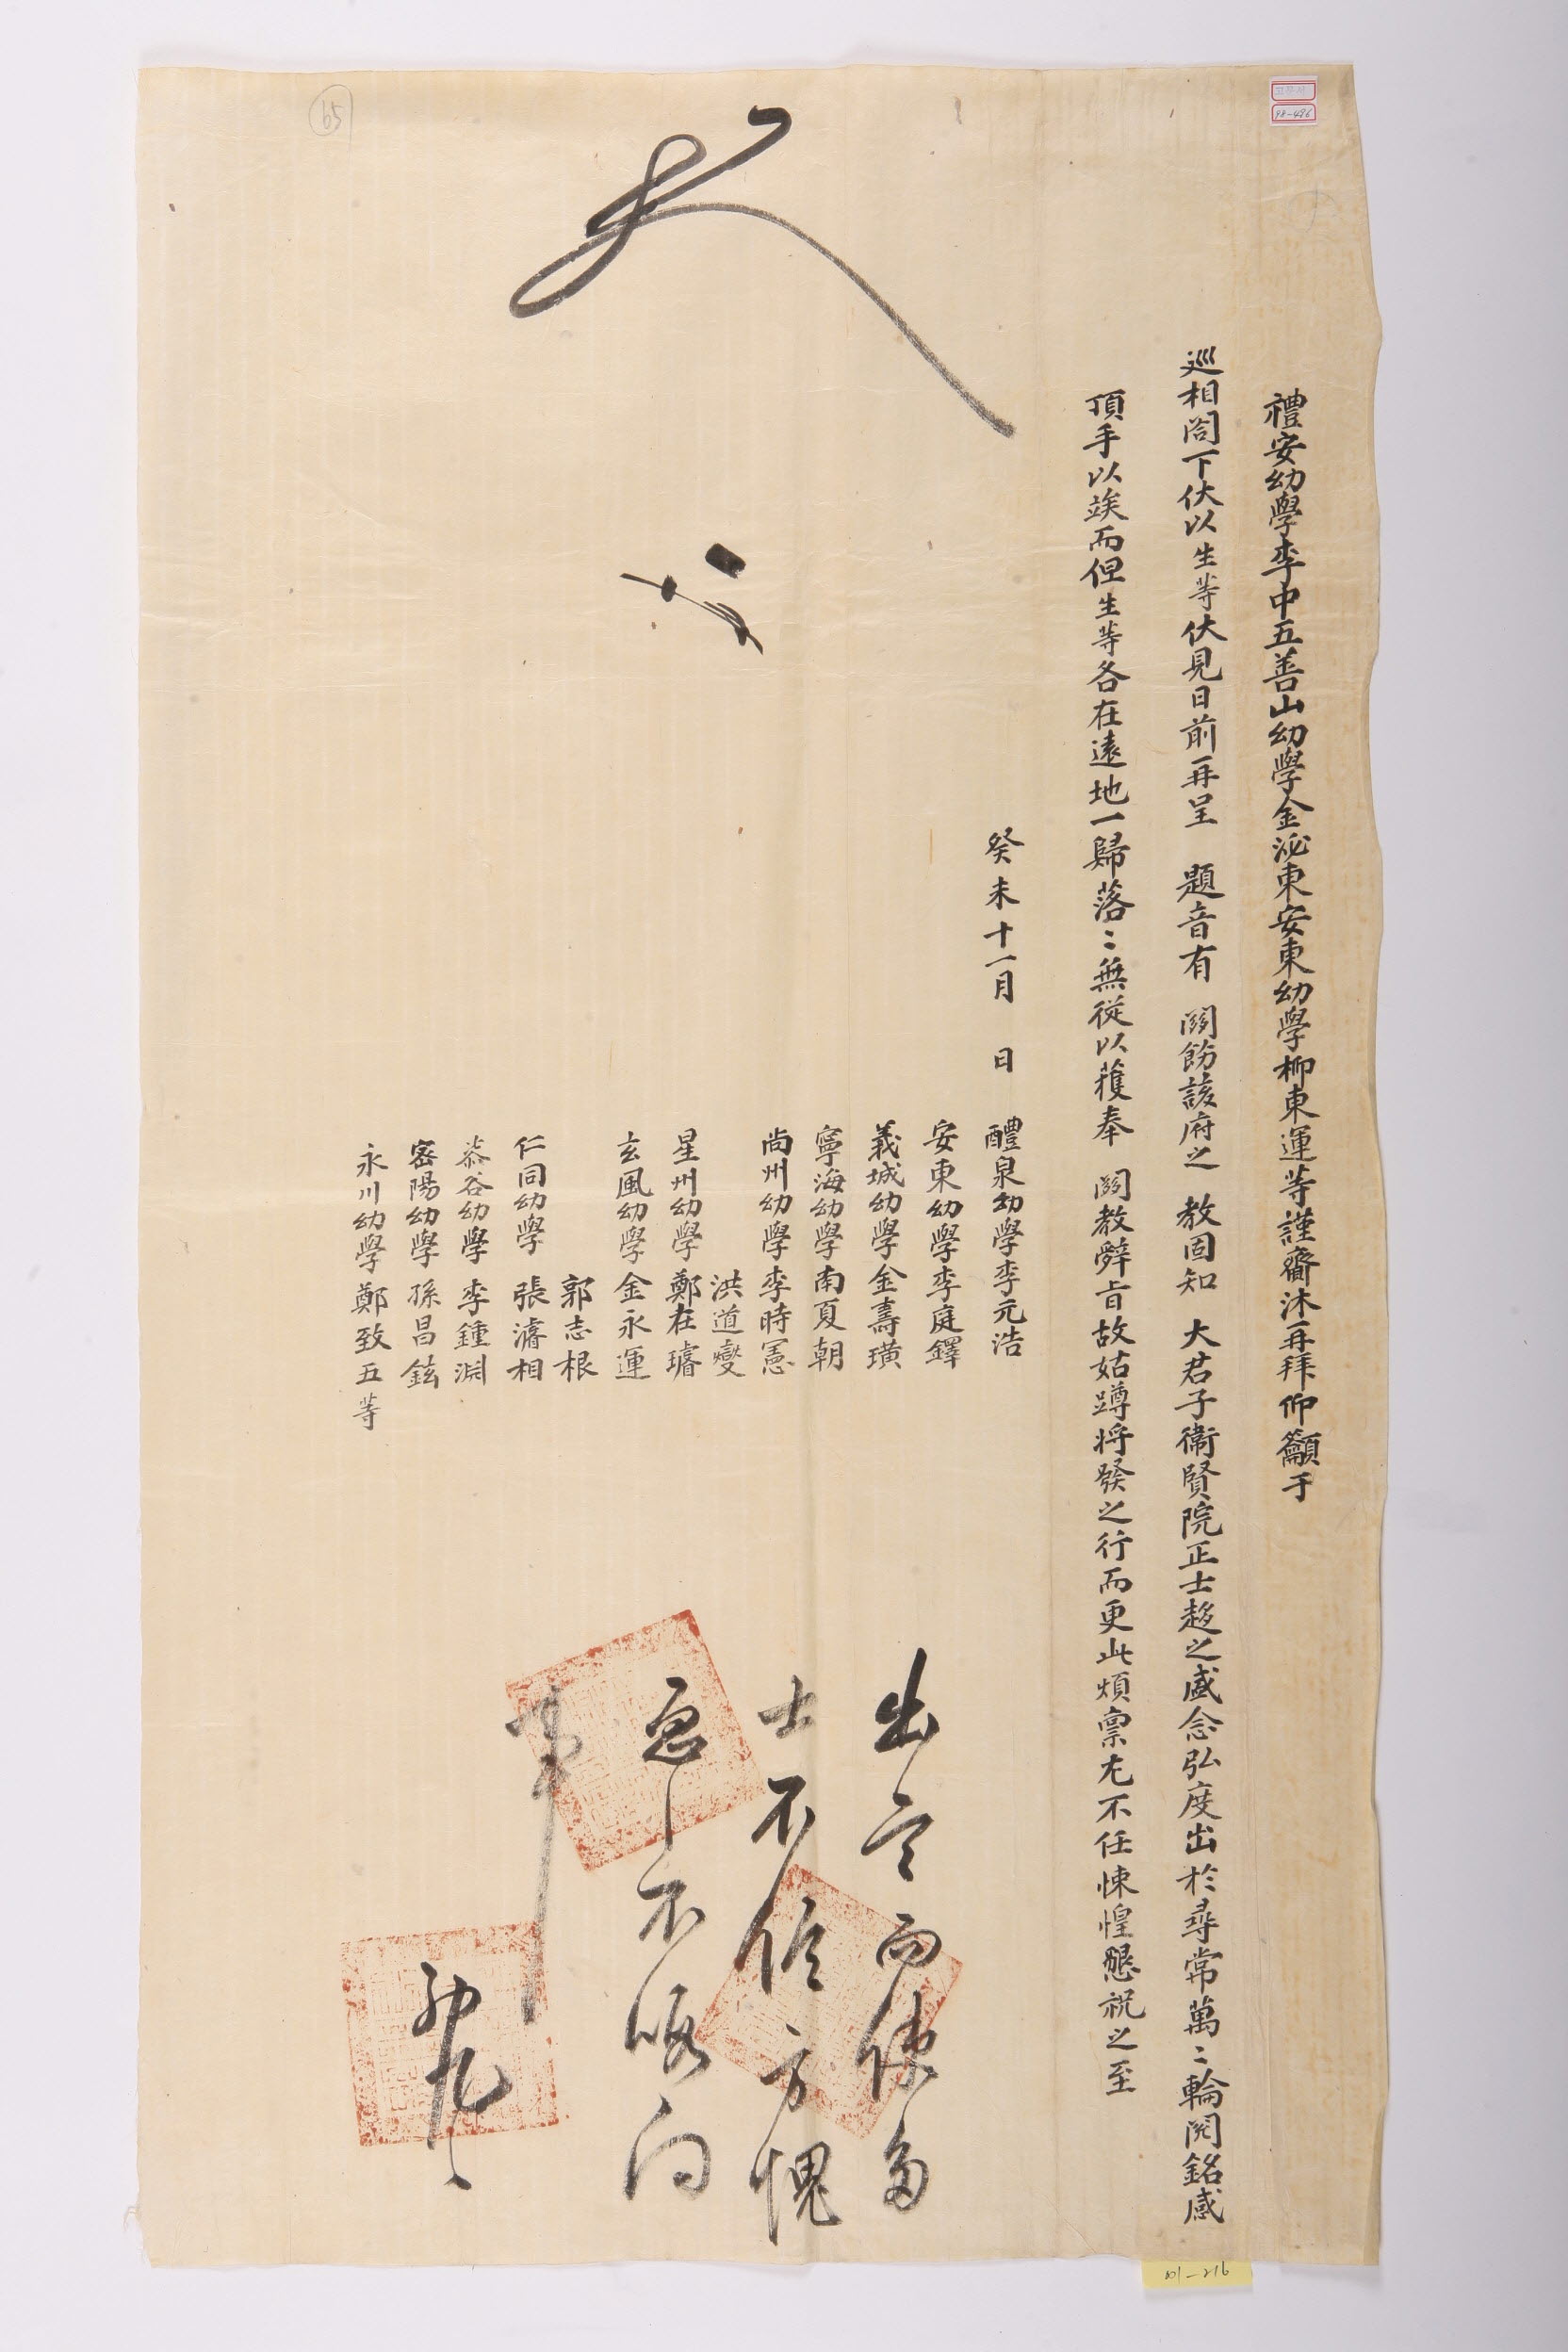 禮安幼學李中五善山幼學金泌東安東幼學柳東運等謹齋沐再拜仰籲于
巡相閤下伏以生等伏見日前再呈 題音有 關飭該府之 敎固知 大君子衛賢院正士趍之盛念弘度出於尋常萬〻輪関銘感
頂手以竢而但生等各在遠地一歸落〻無從以獲奉 關敎辭旨故姑蹲將發之行而更此煩稟尤不任悚惶懇祝之至
癸未十一月 日
醴泉幼學李元浩
安東幼學李庭鐸
義城幼學金壽璜
寧海幼學南夏朝
尙州幼學李時憲
洪道燮
星州幼學鄭在璿
玄風幼學金永運
郭志根
仁同幼學張濬相
柒谷幼學李鍾淵
密陽幼學孫昌鉉
永川幼學鄭致五等
出言而使多
士不信方愧
不暇向
事
初九
65
98-496
01-216